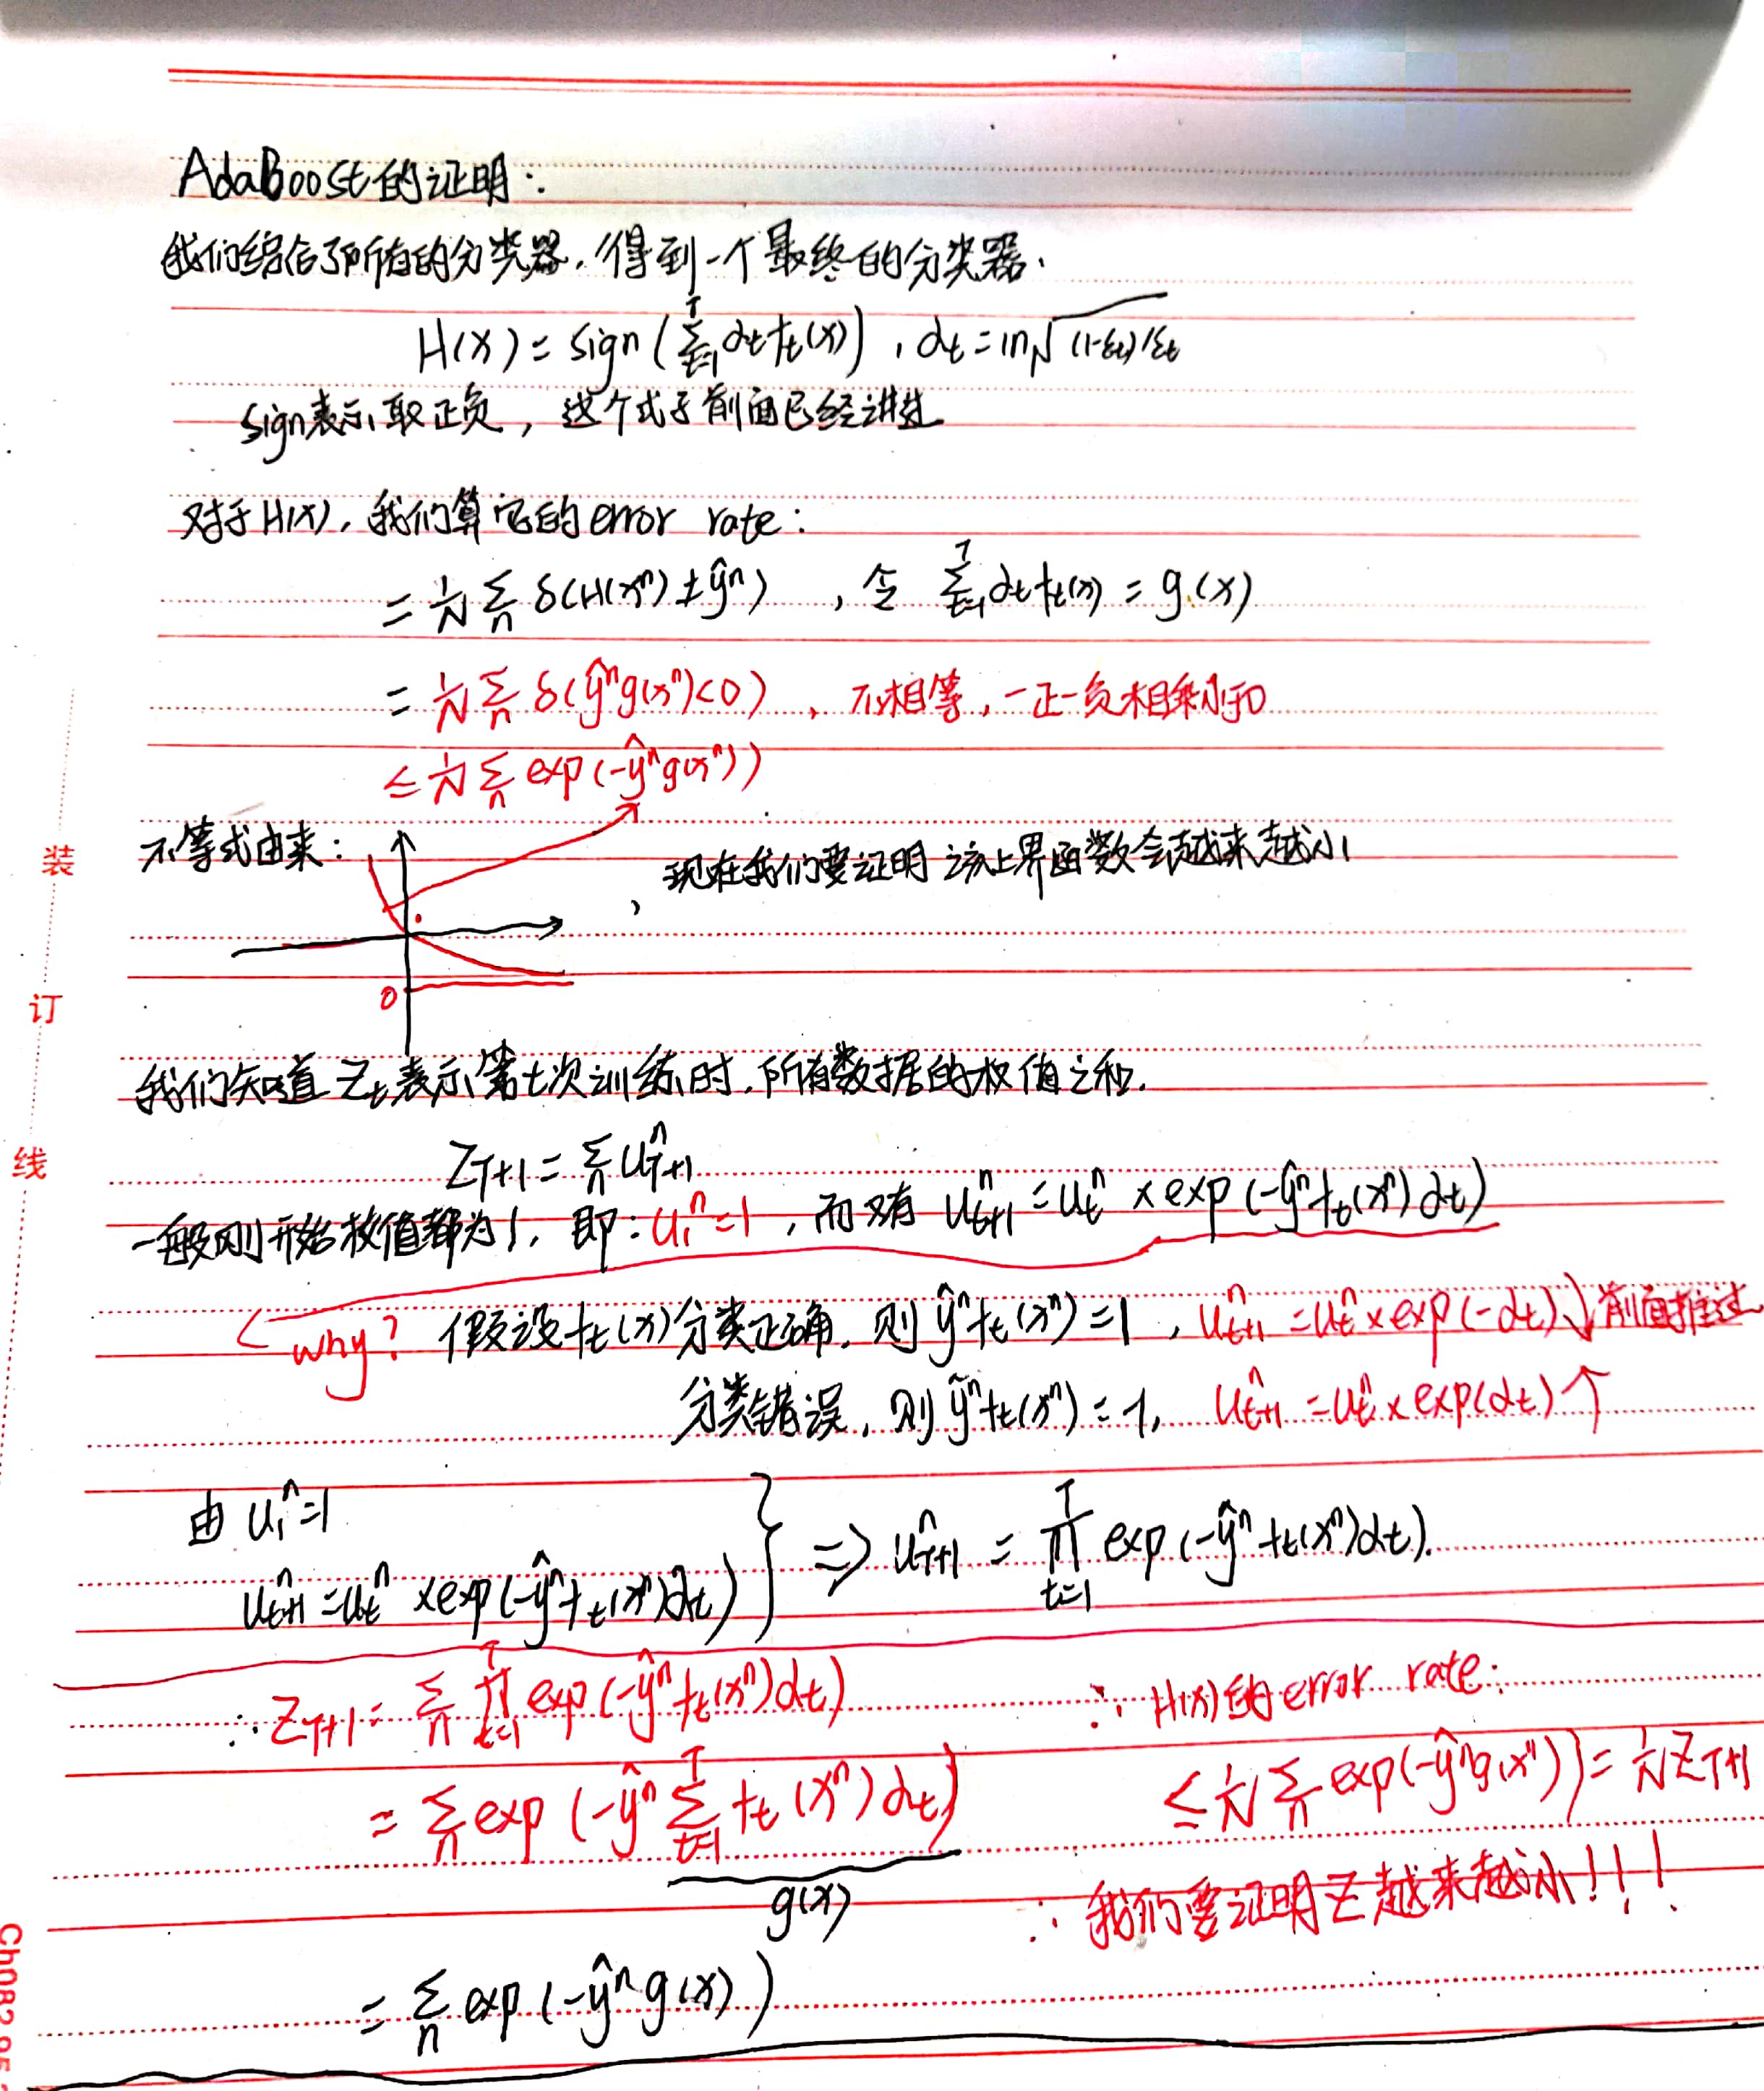 AdaBoost的证明：
我们结合了所有的分类器，得到一个最终的分类器.
H(x) = sign(∑_{t=1}^{T} α_t f_t(x)) , α_t = ln√((1-ε_t)/ε_t)
sign表示取正负，这个式子前面已经讲过
对于H(x)，我们算它的error rate：
= 1/N ∑_n δ(H(x^n) ≠ ŷ^n) ，令 ∑_{t=1}^{T} α_t f_t(x) = g(x)
= 1/N ∑_n δ(ŷ^n g(x^n) < 0) ，不相等，一正一负相乘小于0
≤ 1/N ∑_n exp(-ŷ^n g(x^n))
不等式由来：
，现在我们要证明该上界函数会越来越小
0
我们知道 Z_t 表示第t次训练时，所有数据的权值之和.
Z_{T+1} = ∑_n u_{T+1}^n
一般刚开始权值都为1，即：u_1^n = 1 ，而又有 u_{t+1}^n = u_t^n × exp(-ŷ^n f_t(x^n) α_t)
why? 假设f_t(x)分类正确，则 ŷ^n f_t(x^n) = 1 ，u_{t+1}^n = u_t^n × exp(-α_t)↓ 前面推过
分类错误，则 ŷ^n f_t(x^n) = -1， u_{t+1}^n = u_t^n × exp(α_t) ↑
由 u_1^n = 1
u_{t+1}^n = u_t^n × exp(-ŷ^n f_t(x^n) α_t) } ⇒ u_{T+1}^n = ∏_{t=1}^{T} exp(-ŷ^n f_t(x^n) α_t).
∴ Z_{T+1} = ∑_n ∏_{t=1}^{T} exp(-ŷ^n f_t(x^n) α_t)
= ∑_n exp(-ŷ^n ∑_{t=1}^{T} f_t(x^n) α_t)
g(x)
= ∑_n exp(-ŷ^n g(x))
∴ H(x)的error rate：
≤ 1/N ∑_n exp(-ŷ^n g(x^n)) = 1/N Z_{T+1}
∴ 我们要证明Z越来越小!!!
装
订
线